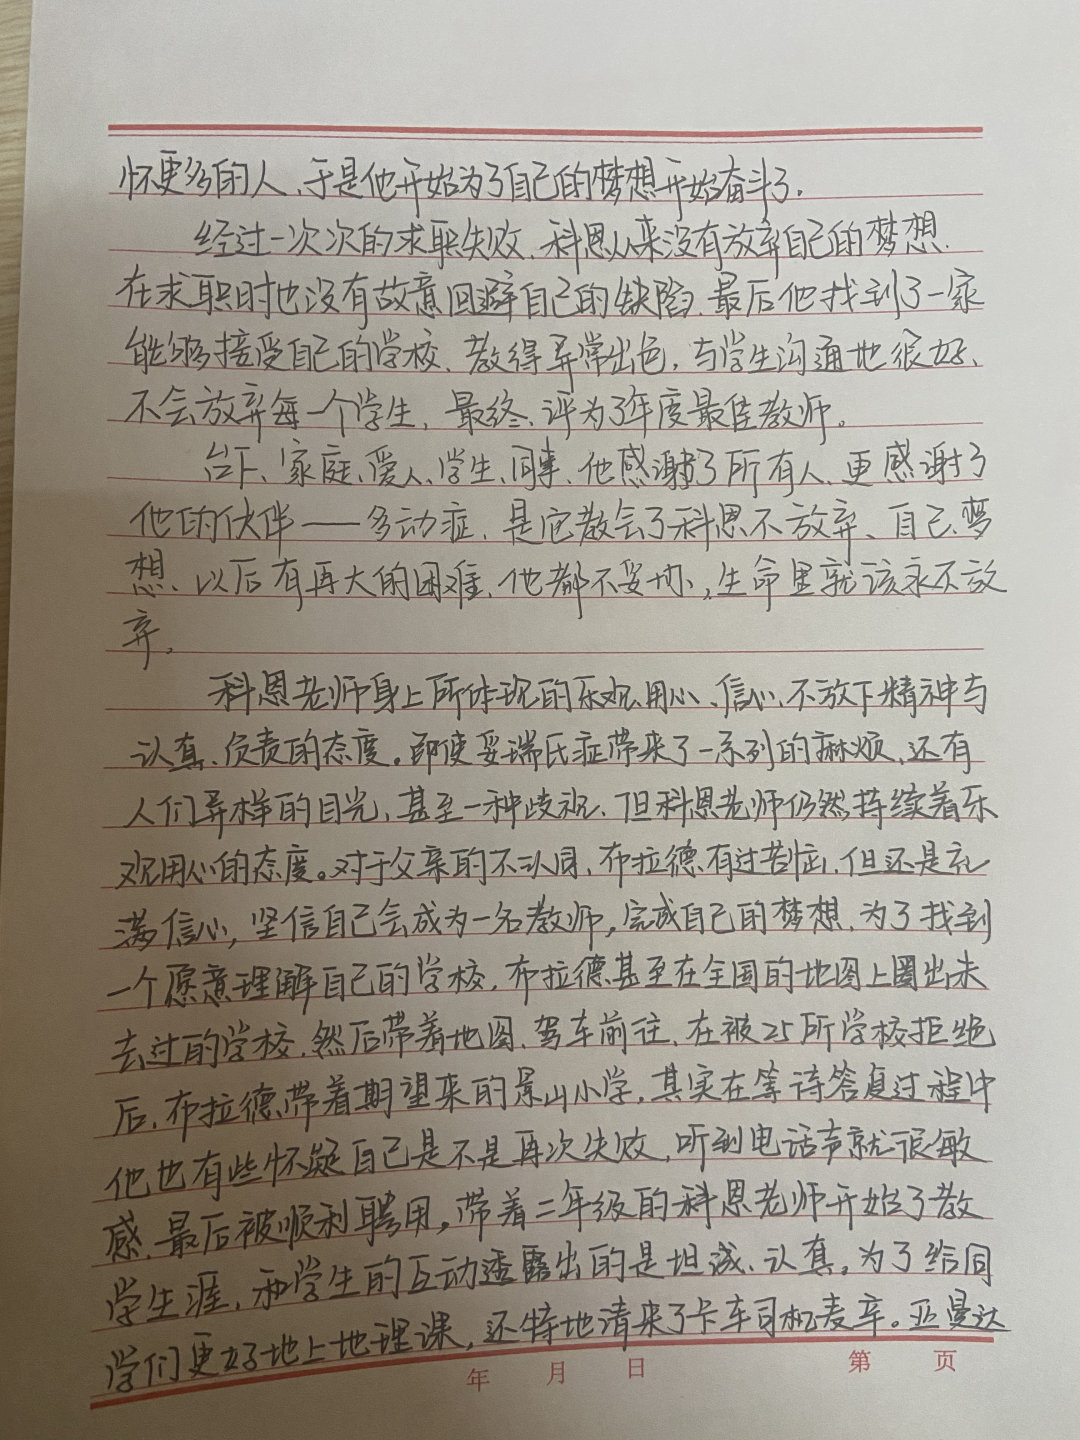 怀更多的人、于是他开始为了自己的梦想开始奋斗了.
经过一次次的求职失败.科恩从来没有放弃自己的梦想.
在求职时也没有故意回避自己的缺陷.最后他找到了一家
能够接受自己的学校.教得异常出色,与学生沟通地很好、
不会放弃每一个学生,最终、评为了年度最佳教师。
台下、家庭、爱人、学生、同事、他感谢了所有人、更感谢了
他的伙伴——多动症.是它教会了科恩不放弃、自己、梦
想、以后有再大的困难、他都不妥协,生命里就该永不放
弃。
科恩老师身上所体现的乐观、用心、信心、不放下精神与
认真、负责的态度。即使妥瑞氏症带来了一系列的麻烦、还有
人们异样的目光,甚至一种歧视、但科恩老师仍然持续着乐
观用心的态度。对于父亲的不认同、布拉德有过苦恼.但还是充
满信心,坚信自己会成为一名教师,完成自己的梦想.为了找到
一个愿意理解自己的学校,布拉德甚至在全国的地图上圈出未
去过的学校.然后带着地图、驾车前往、在被25所学校拒绝
后、布拉德带着期望来的景山小学,其实在等待答复过程中
他也有些怀疑自己是不是再次失败,听到电话声就很敏
感、最后被顺利聘用,带着二年级的科恩老师开始了教
学生涯、和学生的互动透露出的是坦诚、认真。为了给同
学们更好地上地理课,还特地请来了卡车司机麦辛。亚曼达
年 月 日 第 页